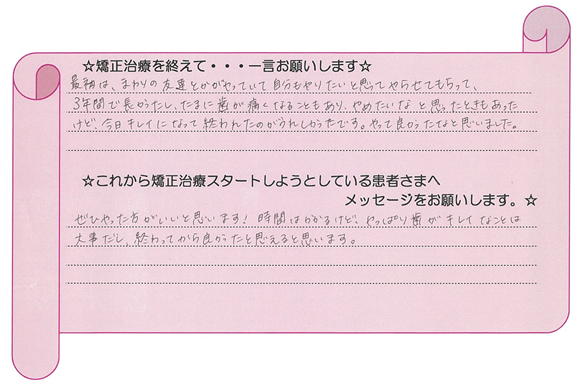 ☆矯正治療を終えて・・・一言お願いします☆
最初は、まわりの友達とかがやっていて自分もやりたいと思ってやらせてもらって、
3年間で長かったし、たまに歯が痛くなることもあり、やめたいなと思ったときもあった
けど、今日キレイになって終われたのがうれしかったです。やって良かったなと思いました。
☆これから矯正治療スタートしようとしている患者さまへ
メッセージをお願いします。☆
ぜひやった方がいいと思います！時間はかかるけど、やっぱり歯がキレイなことは
大事だし、終わってから良かったと思えると思います。